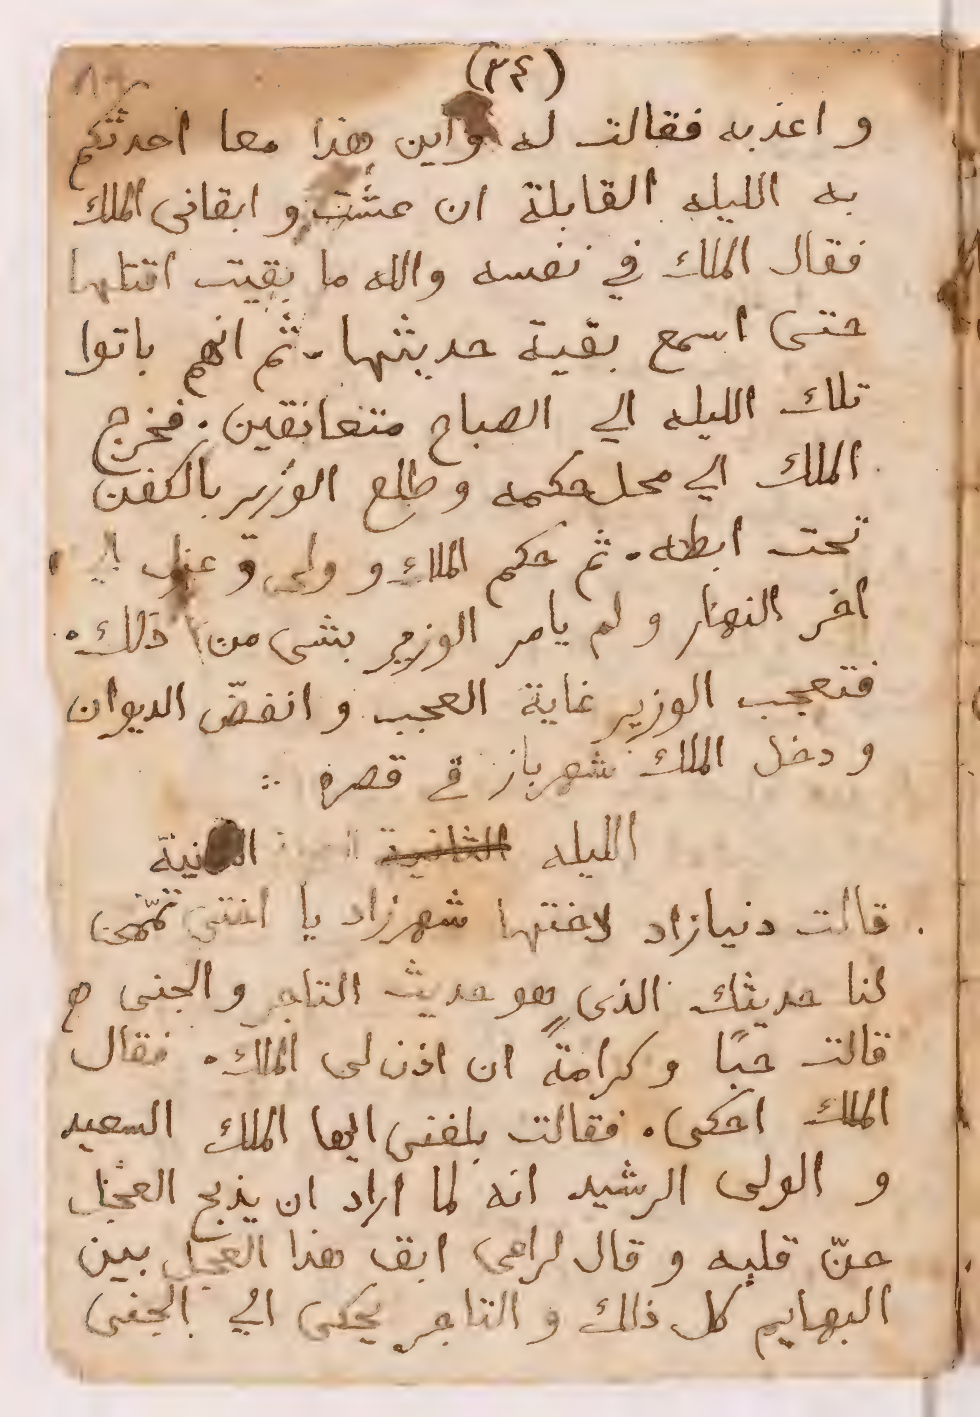 (٣٤)
و اعذبه فقالت له واين هذا معا احدثكم
به الليله القابلة ان عشت و ابقانى الملك
فقال الملك في نفسه والله ما بقيت اقتلها
حتى اسمع بقية حديثها. ثم انهم باتوا
تلك الليله الي الصباح متعانقين. فخرج
الملك الي محل حكمه و طلع الوزير بالكفن
تحت ابطه. ثم حكم الملك و ولى و عزل الي
اخر النهار و لم يامر الوزير بشى من ذلك.
فتعجب الوزير غاية العجب و انفضّ الديوان
و دخل الملك شهرباز في قصره ::
الليله الثانية
قالت دنيازاد لاختها شهرزاد يا اختى تمّمى
لنا حديثك الذى هو حديث التاجر و الجنى
قالت حبًا و كرامةً ان اذن لى الملك. فقال
الملك احكى. فقالت بلغنى ايها الملك السعيد
و الولى الرشيد انه لما اراد ان يذبح العجل
حنّ قلبه و قال لراعى ابق هذا العجل بين
البهايم كل ذلك و التاجر يحكى الي الجنى